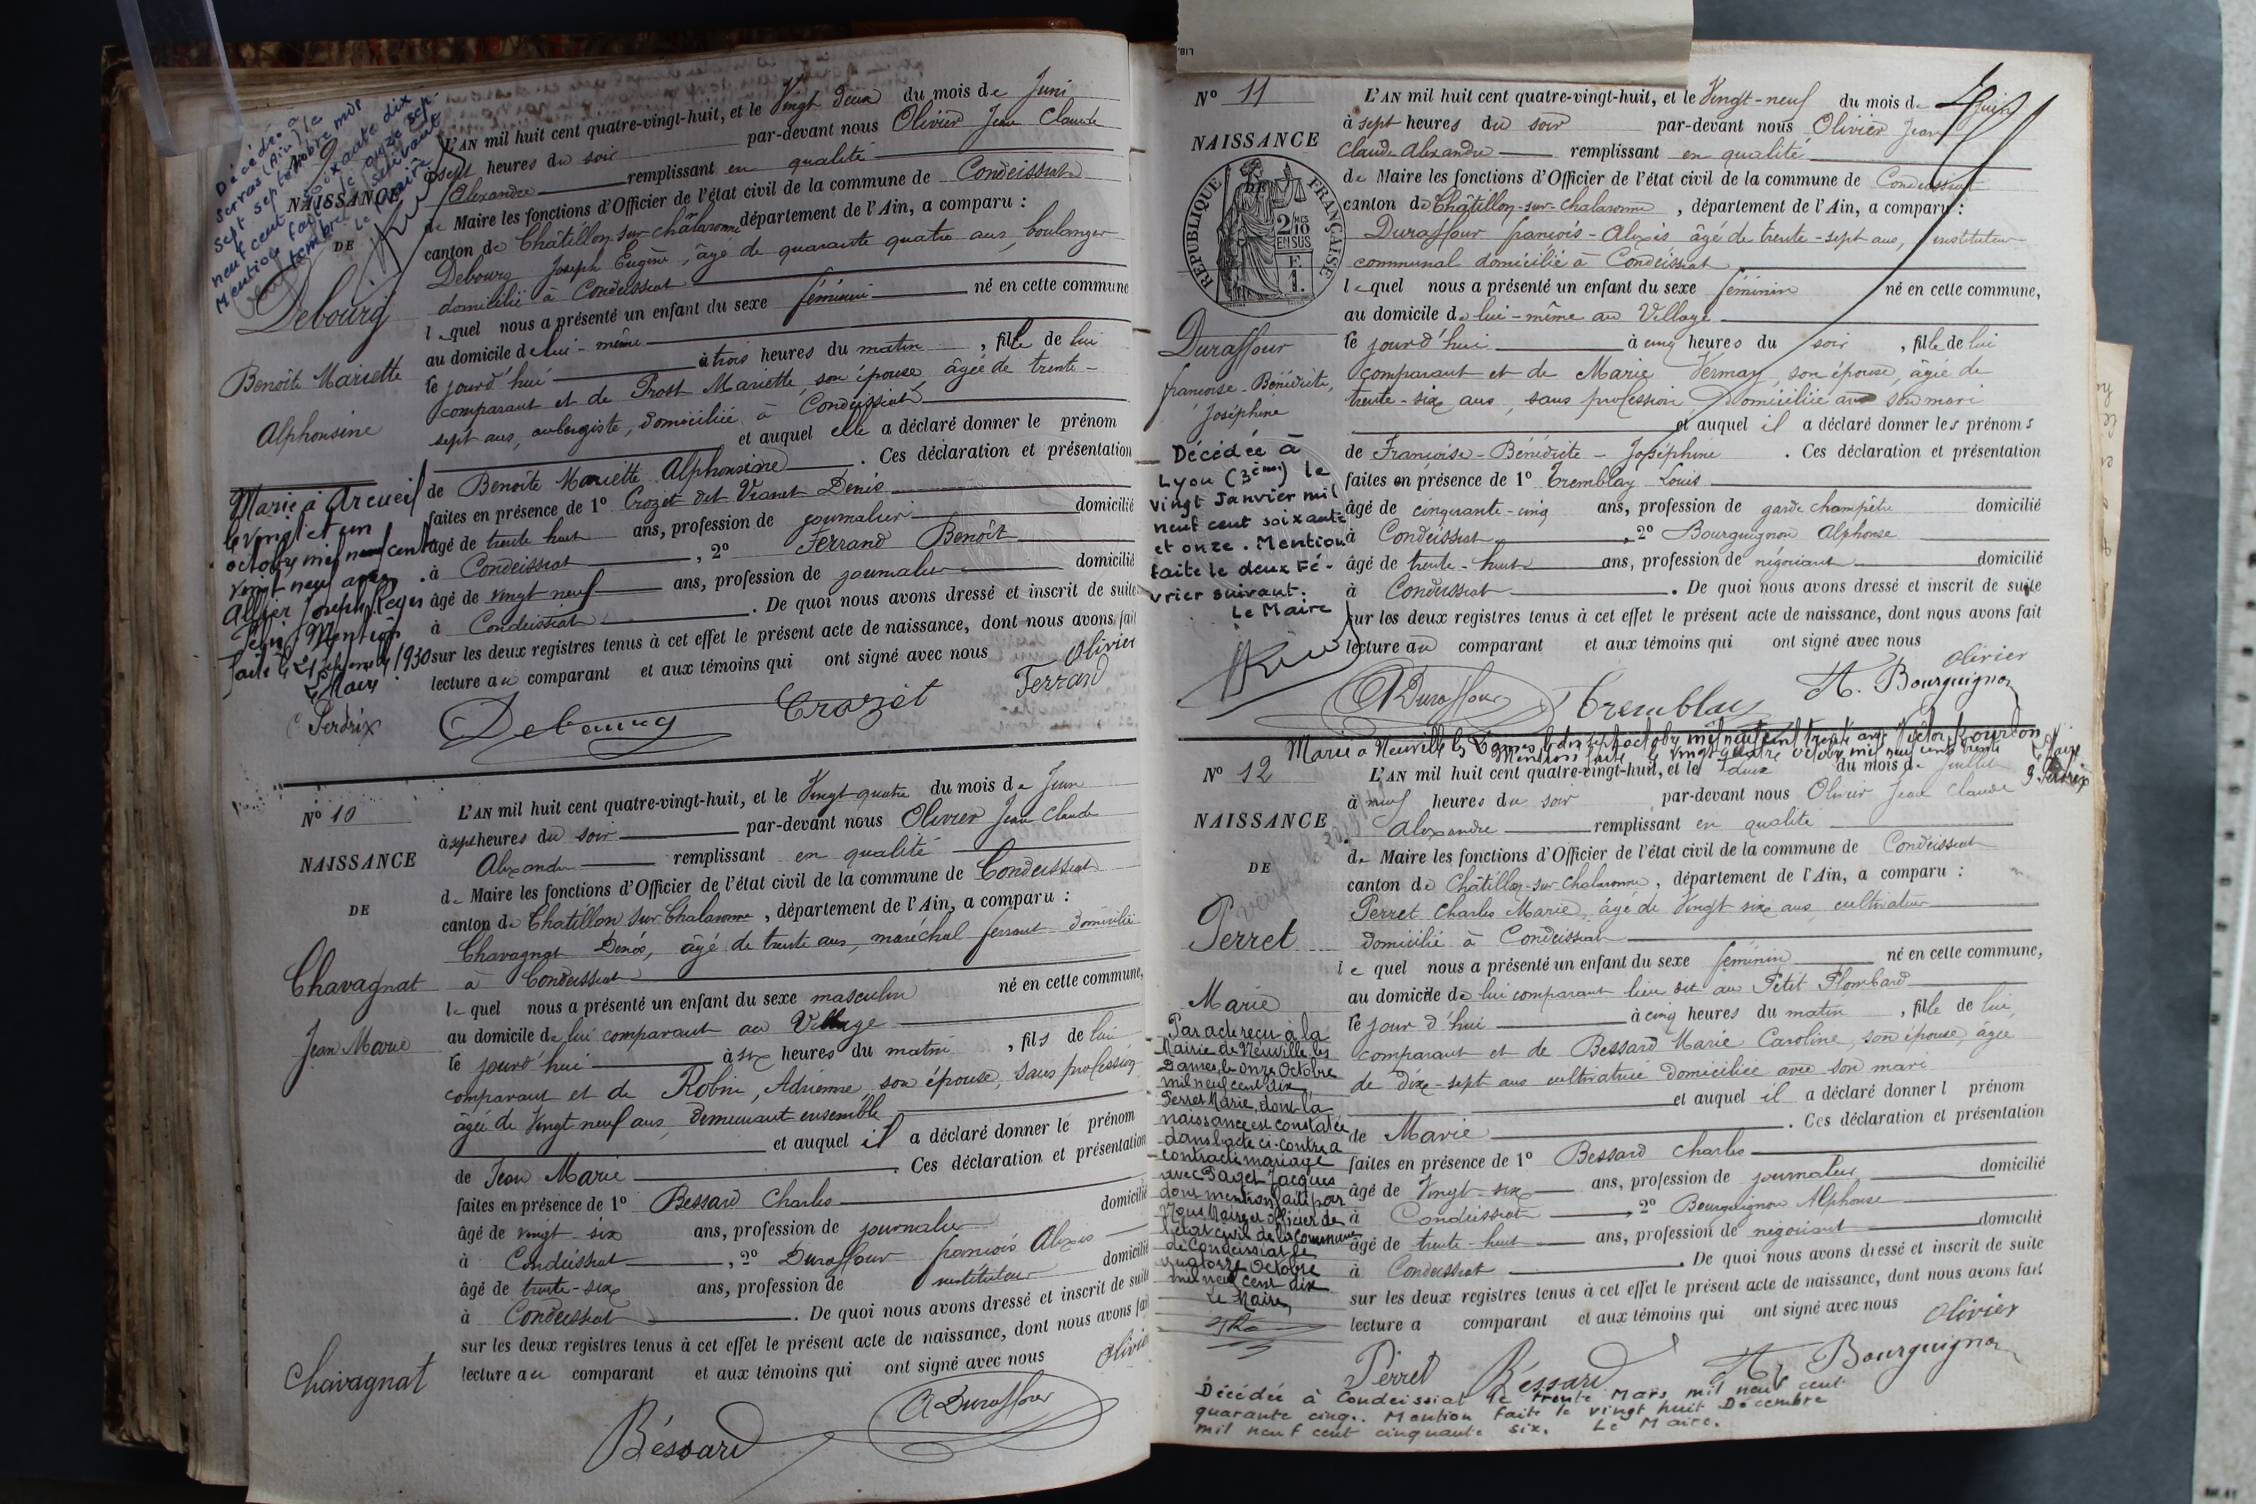 Décédée à
Servas (Ain) le
sept septembre mil
neuf cent soixante dix
Mention faite le onze sep-
tembre suivant
Le Maire
NAISSANCE
DE
Debourg
Benoîte Mariette
Alphonsine
Mariée à Arcueil
le vingt et un
octobre mil neuf cent
vingt neuf avec
Allier Joseph
Mention
faite le 1930
Le Maire
Perdrix
L'AN mil huit cent quatre-vingt-huit, et le Vingt deux du mois de Juin
à sept heures du soir par-devant nous Olivier Jean Claude
Alexandre remplissant en qualité
de Maire les fonctions d'Officier de l'état civil de la commune de Condeissiat
canton de Châtillon sur chalaronne département de l'Ain, a comparu :
Debourg Joseph Eugène, âgé de quarante quatre ans, boulanger
domicilié à Condeissiat
lequel nous a présenté un enfant du sexe féminin né en cette commune
au domicile de lui-même
le jourd'hui à trois heures du matin, fille de lui
comparant et de Prost Mariette, son épouse, âgée de trente-
sept ans, aubergiste, domiciliée à Condeissiat
et auquel elle a déclaré donner le prénom
de Benoîte Mariette Alphonsine. Ces déclaration et présentation
faites en présence de 1º Crozet dit Vianet Denis
âgé de trente huit ans, profession de journalier domicilié
à Condeissiat, 2º Ferrand Benoît
âgé de vingt neuf ans, profession de journalier domicilié
à Condeissiat. De quoi nous avons dressé et inscrit de suite
sur les deux registres tenus à cet effet le présent acte de naissance, dont nous avons fait
lecture au comparant et aux témoins qui ont signé avec nous
Olivier
Debourg Crozet Ferrand
Nº 10
NAISSANCE
DE
Chavagnat
Jean Marie
L'AN mil huit cent quatre-vingt-huit, et le Vingt-quatre du mois de Juin
à sept heures du soir par-devant nous Olivier Jean Claude
Alexandre remplissant en qualité
de Maire les fonctions d'Officier de l'état civil de la commune de Condeissiat
canton de Châtillon sur Chalaronne, département de l'Ain, a comparu :
Chavagnat Denis, âgé de trente ans, maréchal ferrant domicilié
à Condeissiat
lequel nous a présenté un enfant du sexe masculin né en cette commune,
au domicile de lui comparant au Village
le jourd'hui à six heures du matin, fils de lui
comparant et de Robin, Adrienne, son épouse, sans profession
âgée de Vingt neuf ans, demeurant ensemble
et auquel il a déclaré donner le prénom
de Jean Marie. Ces déclaration et présentation
faites en présence de 1º Bessard Charles
âgé de vingt-six ans, profession de journalier domicilié
à Condeissiat, 2º Duraffour françois Alexis
âgé de trente-six ans, profession de instituteur domicilié
à Condeissiat. De quoi nous avons dressé et inscrit de suite
sur les deux registres tenus à cet effet le présent acte de naissance, dont nous avons fait
lecture au comparant et aux témoins qui ont signé avec nous
Olivier
Chavagnat
Béssard A Duraffour
Nº 11
NAISSANCE
DE
RÉPUBLIQUE FRANÇAISE
2/10 MES
EN SUS
E
1.
Duraffour
françoise-Bénédicte,
Joséphine
Décédée à
Lyon (3ème) le
vingt Janvier mil
neuf cent soixante
et onze. Mention
faite le deux Fé-
vrier suivant.
Le Maire
L'AN mil huit cent quatre-vingt-huit, et le Vingt-neuf du mois de Juin
à sept heures du soir par-devant nous Olivier Jean
Claude Alexandre remplissant en qualité
de Maire les fonctions d'Officier de l'état civil de la commune de Condeissiat
canton de Châtillon-sur-Chalaronne, département de l'Ain, a comparu :
Duraffour françois-Alexis âgé de trente-sept ans, instituteur
communal domicilié à Condeissiat
lequel nous a présenté un enfant du sexe féminin né en cette commune,
au domicile de lui-même au Village
le jourd'hui à cinq heures du soir, fille de lui
comparant et de Marie Vermay, son épouse, âgée de
trente-six ans, sans profession domiciliée avec son mari
et auquel il a déclaré donner les prénoms
de Françoise-Bénédicte-Joséphine. Ces déclaration et présentation
faites en présence de 1º Tremblay Louis
âgé de cinquante-cinq ans, profession de garde champêtre domicilié
à Condeissiat, 2º Bourguignon Alphonse
âgé de trente-huit ans, profession de négociant domicilié
à Condeissiat. De quoi nous avons dressé et inscrit de suite
sur les deux registres tenus à cet effet le présent acte de naissance, dont nous avons fait
lecture au comparant et aux témoins qui ont signé avec nous
Olivier
A Duraffour Tremblay A. Bourguignon
Mariée à Neuville les Dames, le dix sept octobre mil neuf cent trente avec Victor Bourdon
Mention faite le vingt quatre octobre mil neuf cent trente
Le Maire
J Perdrix
Nº 12
NAISSANCE
DE
Perret
Marie
Par acte reçu à la
Mairie de Neuville les
Dames, le onze Octobre
mil neuf cent dix
Perret Marie, dont la
naissance est constatée
dans l'acte ci-contre a
contracté mariage
avec Paget Jacques
dont mention faite par
Nous Maire et officier de
l'état civil de la commune
de Condeissiat le
quatorze Octobre
mil neuf cent dix
Le Maire,
L'AN mil huit cent quatre-vingt-huit, et le deux du mois de Juillet
à neuf heures du soir par-devant nous Olivier Jean Claude
Alexandre remplissant en qualité
de Maire les fonctions d'Officier de l'état civil de la commune de Condeissiat
canton de Châtillon-sur-Chalaronne, département de l'Ain, a comparu :
Perret Charles Marie, âgé de Vingt six ans cultivateur
domicilié à Condeissiat
lequel nous a présenté un enfant du sexe féminin né en cette commune,
au domicile de lui comparant lieu dit au Petit Plombard
le jour d'hui à cinq heures du matin, fille de lui
comparant et de Bessard Marie Caroline, son épouse, âgée
de dix-sept ans cultivatrice domiciliée avec son mari
et auquel il a déclaré donner l prénom
de Marie. Ces déclaration et présentation
faites en présence de 1º Bessard Charles
âgé de Vingt-six ans, profession de journalier domicilié
à Condeissiat, 2º Bourguignon Alphonse
âgé de trente-huit ans, profession de négociant domicilié
à Condeissiat. De quoi nous avons dressé et inscrit de suite
sur les deux registres tenus à cet effet le présent acte de naissance, dont nous avons fait
lecture a comparant et aux témoins qui ont signé avec nous
Olivier
Perret Béssard A. Bourguignon
Décédée à Condeissiat le trente Mars mil neuf cent
quarante cinq. Mention faite le vingt huit Décembre
mil neuf cent cinquante six. Le Maire.